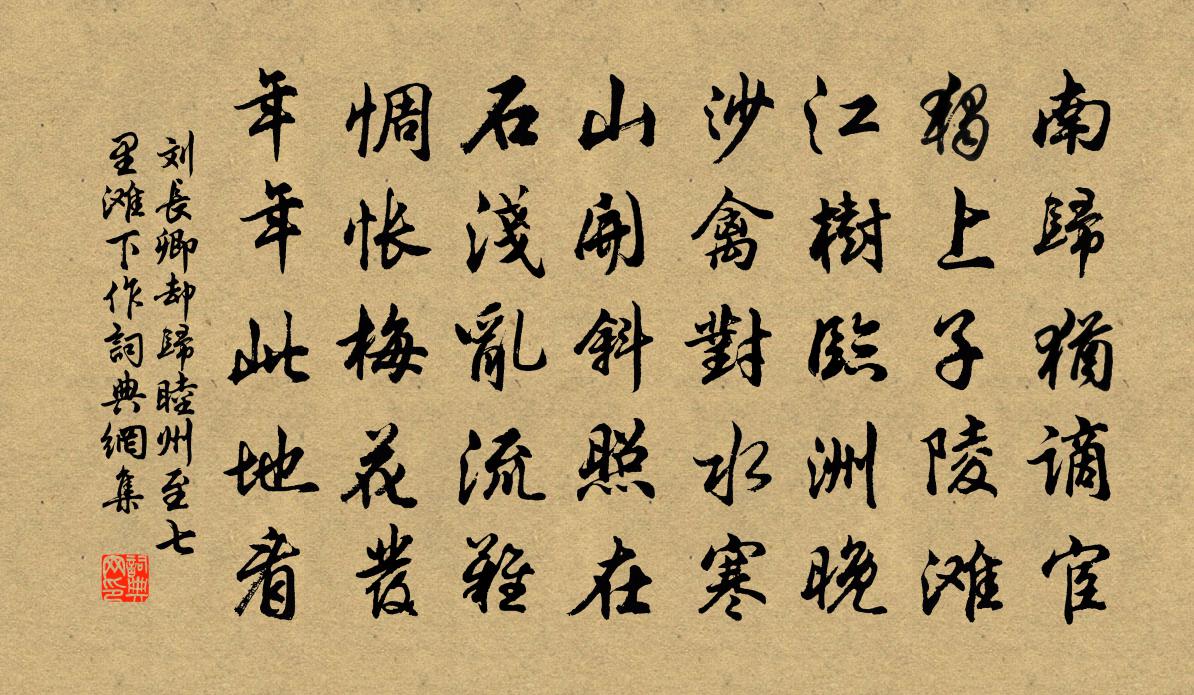 南歸猶謫宦
獨上子陵滩
江樹臨洲晚
沙禽對水寒
山開斜照在
石淺亂流難
惆怅梅花發
年年此地看
刘長卿却歸睦州至七
里滩下作詞典網集
詞典
网印